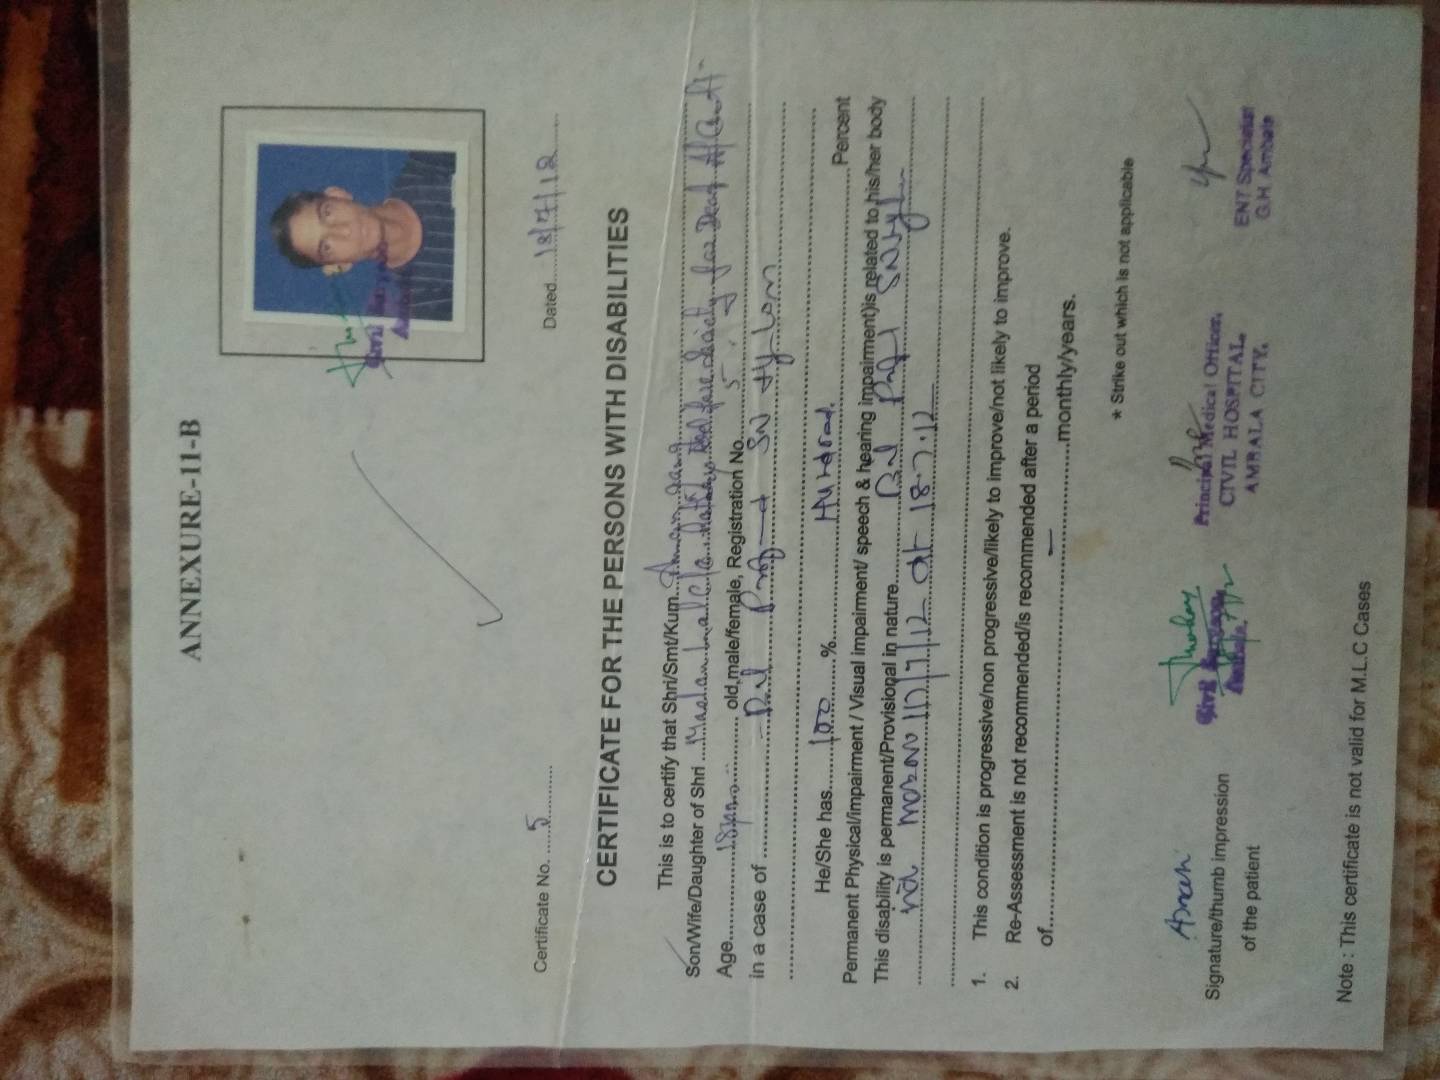 ANNEXURE-11-B
Certificate No. ....5............ Dated....18/7/12......
CERTIFICATE FOR THE PERSONS WITH DISABILITIES
This is to certify that Shri/Smt/Kum....
Son/Wife/Daughter of Shri .... Madan Lal c/o Welfare Society for Deaf
Age....18 yrs.... old,male/female, Registration No.....5....
in a case of .... Bil Profound SN Hy. Loss
He/She has....100....%.... Hundred. ....Percent
Permanent Physical/impairment / Visual impairment/ speech & hearing impairment)is related to his/her body
This disability is permanent/Provisional in nature....
17/7/12 dt 18.7.12
1. This condition is progressive/non progressive/likely to improve/not likely to improve.
2. Re-Assessment is not recommended/is recommended after a period
of....—....monthly/years.
* Strike out which is not applicable
Signature/thumb impression
of the patient
Civil Surgeon
Ambala
Principal Medical Officer,
CIVIL HOSPITAL,
AMBALA CITY.
ENT Specialist
G.H. Ambala
Note : This certificate is not valid for M.L.C Cases